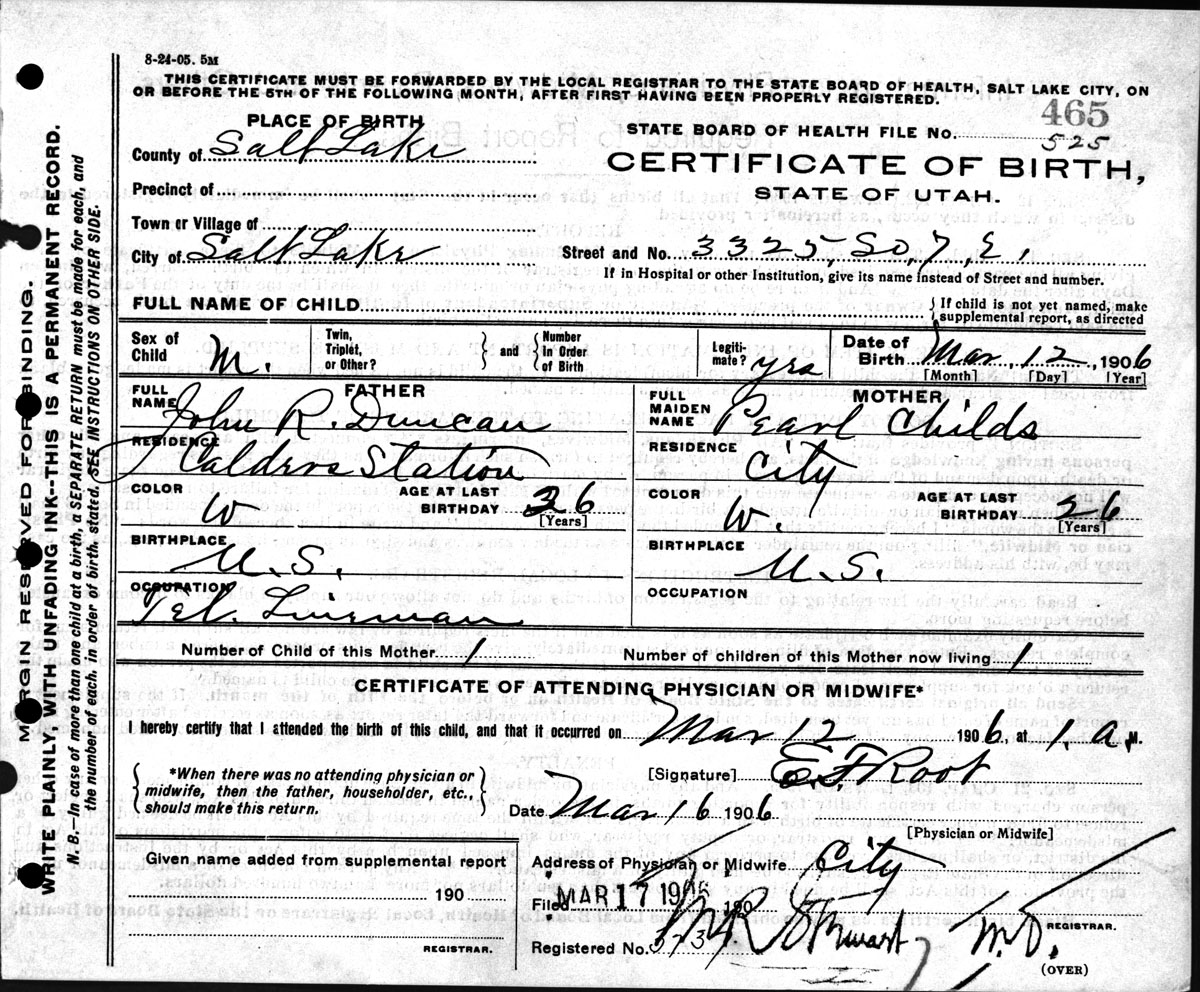 8-24-05. 5M
THIS CERTIFICATE MUST BE FORWARDED BY THE LOCAL REGISTRAR TO THE STATE BOARD OF HEALTH, SALT LAKE CITY, ON
OR BEFORE THE 5TH OF THE FOLLOWING MONTH, AFTER FIRST HAVING BEEN PROPERLY REGISTERED.
465
PLACE OF BIRTH
STATE BOARD OF HEALTH FILE No. 525
County of Salt Lake
CERTIFICATE OF BIRTH,
Precinct of
STATE OF UTAH.
Town or Village of
City of Salt Lake Street and No. 3325, So, 7, E,
If in Hospital or other Institution, give its name instead of Street and number.
FULL NAME OF CHILD
If child is not yet named, make
supplemental report, as directed
Sex of
Child M.
Twin,
Triplet,
or Other?
and
Number
in Order
of Birth
Legiti-
mate? yes
Date of
Birth Mar, 12, 1906
[Month] [Day] [Year]
FATHER
FULL
NAME John R. Duncan
RESIDENCE
Calders Station
COLOR W AGE AT LAST
BIRTHDAY 26
[Years]
BIRTHPLACE
U.S.
OCCUPATION
Tel. Lineman
MOTHER
FULL
MAIDEN
NAME Pearl Childs
RESIDENCE
City
COLOR W. AGE AT LAST
BIRTHDAY 26
[Years]
BIRTHPLACE
U.S.
OCCUPATION
Number of Child of this Mother 1 Number of children of this Mother now living 1
CERTIFICATE OF ATTENDING PHYSICIAN OR MIDWIFE*
I hereby certify that I attended the birth of this child, and that it occurred on Mar 12 1906, at 1. a M.
*When there was no attending physician or
midwife, then the father, householder, etc.,
should make this return.
[Signature] E F Root
Date Mar 16 1906
[Physician or Midwife]
Given name added from supplemental report
190
REGISTRAR.
Address of Physician or Midwife City
Filed MAR 17 1906 190
Stewart M.D.
REGISTRAR.
Registered No.
(OVER)
MARGIN RESERVED FOR BINDING.
WRITE PLAINLY WITH UNFADING INK--THIS IS A PERMANENT RECORD.
N. B.—In case of more than one child at a birth, a SEPARATE RETURN must be made for each, and
the number of each, in order of birth, stated. SEE INSTRUCTIONS ON OTHER SIDE.